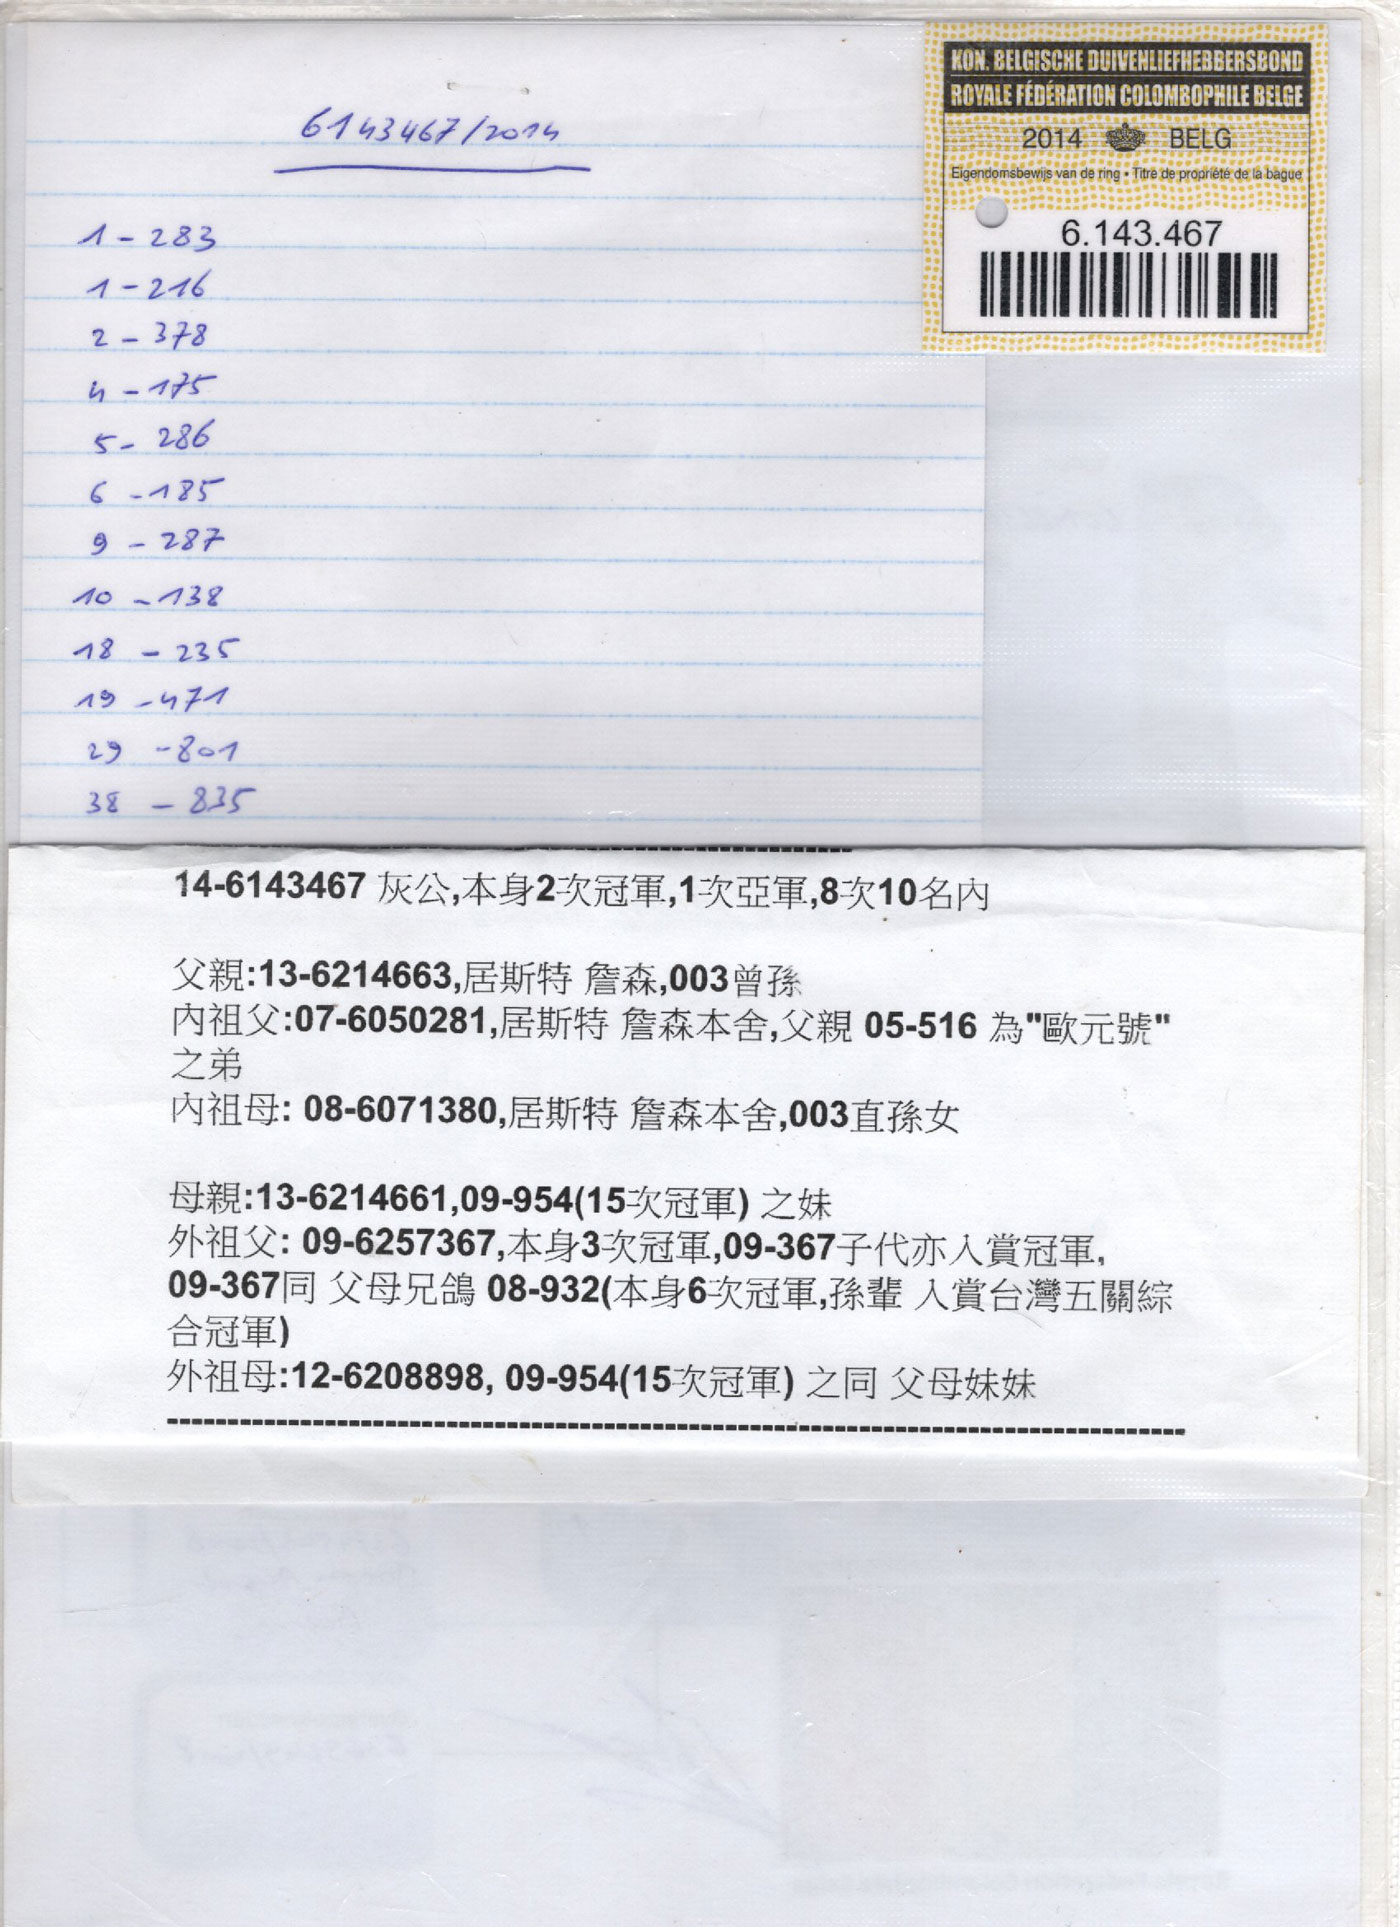 6143467/2014
KON. BELGISCHE DUIVENLIEFHEBBERSBOND
ROYALE FÉDÉRATION COLOMBOPHILE BELGE
2014 BELG
Eigendomsbewijs van de ring • Titre de propriété de la bague
6.143.467
1 - 283
1 - 216
2 - 378
4 - 175
5 - 286
6 - 185
9 - 287
10 - 138
18 - 235
19 - 471
29 - 801
38 - 835
14-6143467 灰公,本身2次冠軍,1次亞軍,8次10名內
父親:13-6214663,居斯特 詹森,003曾孫
內祖父:07-6050281,居斯特 詹森本舍,父親 05-516 為"歐元號"
之弟
內祖母: 08-6071380,居斯特 詹森本舍,003直孫女
母親:13-6214661,09-954(15次冠軍) 之妹
外祖父: 09-6257367,本身3次冠軍,09-367子代亦入賞冠軍,
09-367同 父母兄鴿 08-932(本身6次冠軍,孫輩 入賞台灣五關綜
合冠軍)
外祖母:12-6208898, 09-954(15次冠軍) 之同 父母妹妹